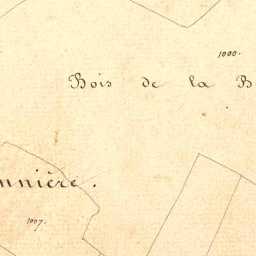 1000.
Bois de la B
nnière.
1007.